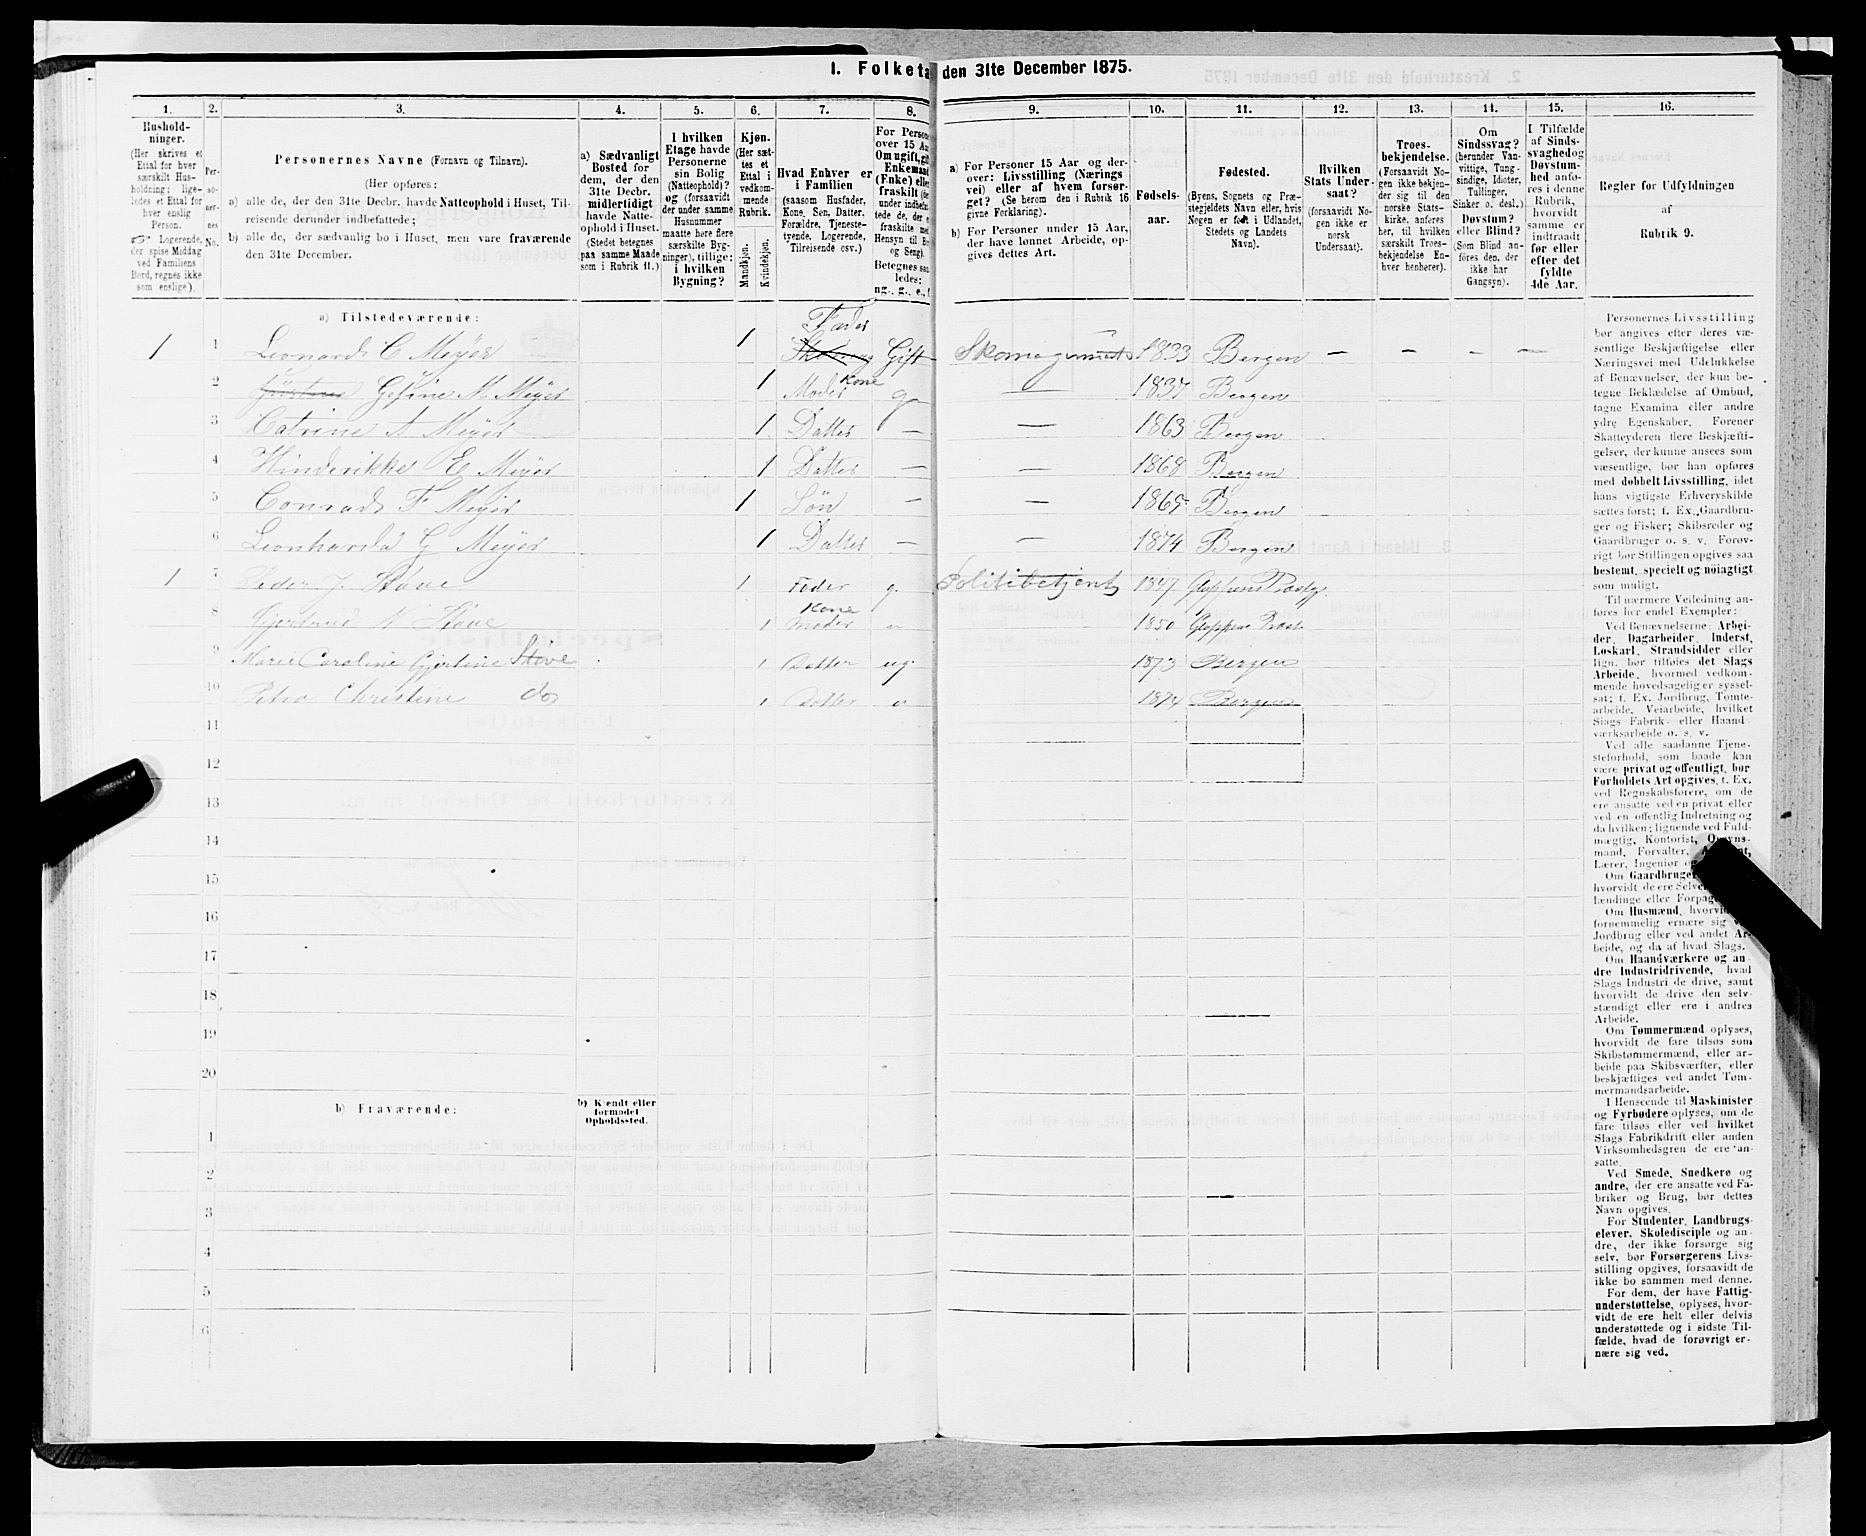 1. Folketa den 31te December 1875.
1. 2. 3. 4. 5. 6. 7. 8. 9. 10. 11. 12. 13. 14. 15. 16.
Hushold-
ninger.
(Her skrives et
Ettal for hver
særskilt Hus-
holdning; lige-
ledes et Ettal for
hver enslig
Person.
☞ Logerende,
der spise Middag
ved Familiens
Bord, regnes ikke
som enslige).
Per-
so-
ner-
nes
No.
Personernes Navne (Fornavn og Tilnavn).
(Her opføres:
a) alle de, der den 31te Decbr. havde Natteophold i Huset, Til-
reisende derunder indbefattede;
b) alle de, der sædvanlig bo i Huset, men vare fraværende
den 31te December.
a) Sædvanligt
Bosted for
dem, der den
31te Decbr.
midlertidigt
havde Natte-
ophold i Huset.
(Stedet betegnes
paa samme Maade
som i Rubrik 11.)
I hvilken
Etage havde
Personerne
sin Bolig
(Natteophold)?
og (forsaavidt
der under samme
Husnummer
maatte høre flere
særskilte Byg-
ninger), tillige:
i hvilken
Bygning?
Kjøn.
(Her sæt-
tes et
Ettal i
vedkom-
mende
Rubrik.
Mandkjøn.
Kvindekjøn.
Hvad Enhver er
i Familien
(saasom Husfader,
Kone, Søn, Datter,
Forældre, Tjeneste-
tyende, Logerende,
Tilreisende osv.)
For Persone
over 15 Aa
Om ugift, gif
Enkemand
(Enke) elle
fraskilt (de
under indbefat
tede de, der e
fraskilte me
Hensyn til Bo
og Seng).
Betegnes saa
ledes:
ug., g., e., f
a) For Personer 15 Aar og der-
over: Livsstilling (Nærings
vei) eller af hvem forsør-
get? (Se herom den i Rubrik 16
givne Forklaring).
b) For Personer under 15 Aar,
der have lønnet Arbeide, op-
gives dettes Art.
Fødsels-
aar.
Fødested.
(Byens, Sognets og Præ-
stegjeldets Navn eller, hvis
Nogen er født i Udlandet,
Stedets og Landets
Navn).
Hvilken
Stats Under-
saat?
(forsaavidt No-
gen ikke er
norsk
Undersaat).
Troes-
bekjendelse.
(Forsaavidt No-
gen ikke bekjen-
der sig til den
norske Stats-
kirke, anføres
her, til hvilken
særskilt Troes-
bekjendelse En-
hver henhører).
Om
Sindssvag?
(herunder Van-
vittige, Tung-
sindige, Idioter,
Tullinger,
Sinker o. desl.)
Døvstum?
eller Blind?
(Som Blind an-
føres den, der
ikke har
Gangsyn).
I Tilfælde
af Sinds-
svaghed og
Døvstum-
hed anfø-
res i denne
Rubrik,
hvorvidt
samme er
indtraadt
før eller
efter det
fyldte
4de Aar.
Regler for Udfyldningen
af
Rubrik 9.
a) Tilstedeværende:
1 1 Leonard C Meyer 1 Fader Gift Skomagermest 1833 Bergen – – – –
2 Gesine M Meyer 1 Moder Kone g — 1837 Bergen
3 Catrine A Meyer 1 Datter — — 1863 Bergen
4 Hinderikke E Meyer 1 Datter — — 1868 Bergen
5 Conrad F Meyer 1 Søn — — 1865 Bergen
6 Leonharda G Meyer 1 Datter — — 1874 Bergen
1 7 Peder J. Støve 1 Fader g. Politibetjent 1847 Gloppens Præstg.
8 N Støve 1 Kone Moder 1850 Gloppens Præst
9 Marie Caroline Gjertine Støve 1 Datter ug. 1873 Bergen
10 Petra Christine do 1 Datter 1874 Bergen
11
12
13
14
15
16
17
18
19
20
b) Fraværende:
b) Kjendt eller
formodet
Opholdssted.
1
2
3
4
5
6
Personernes Livsstilling
bør angives efter deres væ-
sentlige Beskjæftigelse eller
Næringsvei med Udelukkelse
af Benævnelser, der kun be-
tegne Beklædelse af Ombud,
tagne Examina eller andre
ydre Egenskaber. Forener
Skatteyderen flere Beskjæfti-
gelser, der kunne ansees som
væsentlige, bør han opføres
med dobbelt Livsstilling, idet
hans vigtigste Erhverskilde
sættes først; f. Ex. Gaardbru-
ger og Fisker; Skibsreder og
Gaardbruger o. s. v. Forøv-
rigt bør Stillingen opgives saa
bestemt, specielt og nøiagtigt
som muligt.
Til nærmere Veiledning an-
føres her endel Exempler:
Ved Benævnelserne: Arbei-
der, Dagarbeider, Inderst,
Løskarl, Strandsidder eller
lign. bør tilføies det Slags
Arbeide, hvormed vedkom-
mende hovedsagelig er syssel-
sat; f. Ex. Jordbrug, Tomte-
arbeide, Veiarbeide, hvilket
Slags Fabrik- eller Haand-
værksarbeide o. s. v.
Ved alle saadanne Tjene-
steforhold, som baade kan
være privat og offentligt, bør
Forholdets Art opgives, f. Ex.
ved Regnskabsførere, om de
ere ansatte ved en privat eller
ved en offentlig Indretning og
da hvilken; lignende ved Fuld-
mægtig, Kontorist, Opsyns-
mand, Forvalter,
Lærer, Ingeniør
Om Gaardbruger
hvorvidt de ere Selve
lændinge eller Forpag
Om Husmænd, hvorvid
fornemmelig ernære sig
Jordbrug eller ved andet Ar-
beide, og da af hvad Slags.
Om Haandværkere og an-
dre Industridrivende, hvad
Slags Industri de drive, samt
hvorvidt de drive den selv-
stændigt eller ere i andres
Arbeide.
Om Tømmermænd oplyses,
hvorvidt de fare tilsøs som
Skibstømmermænd, eller ar-
beide paa Skibsværfter, eller
beskjæftiges ved andet Tøm-
mermandsarbeide.
I Henseende til Maskinister
og Fyrbødere oplyses, om de
fare tilsøs eller ved hvilket
Slags Fabrikdrift eller anden
Virksomhedsgren de ere an-
satte.
Ved Smede, Snedkere og
andre, der ere ansatte ved Fa-
briker og Brug, bør dettes
Navn opgives.
For Studenter, Landbrugs-
elever, Skoledisciple og an-
dre, der ikke forsørge sig
selv, bør Forsørgerens Livs-
stilling opgives, forsaavidt de
ikke bo sammen med denne.
For dem, der have Fattig-
understøttelse, oplyses, hvor-
vidt de ere helt eller delvis
understøttede og i sidste Til-
fælde, hvad de forøvrigt er-
nære sig ved.